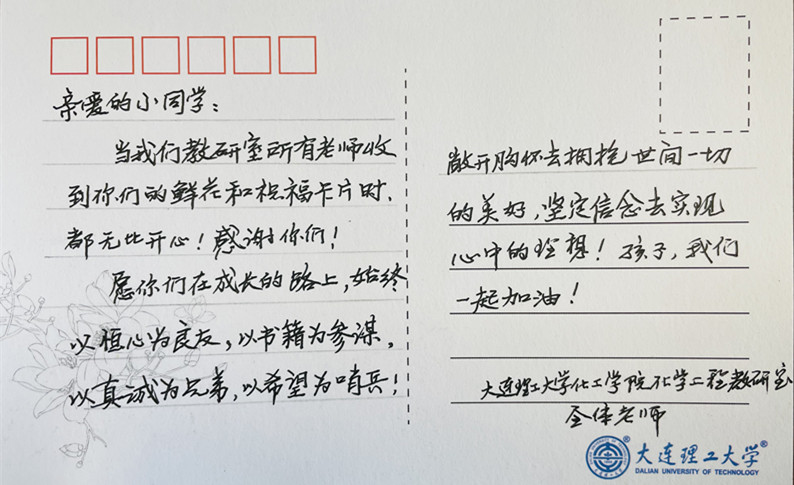 亲爱的小同学：
当我们教研室所有老师收
到你们的鲜花和祝福卡片时，
都无比开心！感谢你们！
愿你们在成长的路上，始终
以恒心为良友，以书籍为参谋，
以真诚为兄弟，以希望为哨兵！
敞开胸怀去拥抱世间一切
的美好，坚定信念去实现
心中的理想！孩子，我们
一起加油！
大连理工大学化工学院化学工程教研室
全体老师
大连理工大学®
DALIAN UNIVERSITY OF TECHNOLOGY